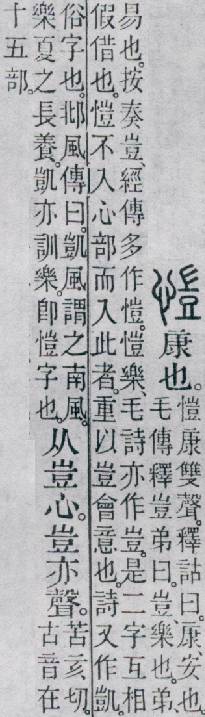 愷
康也。
愷康雙聲。釋詁曰。康、安也。
毛傳釋豈弟曰。豈樂也。弟
易也。按奏豈、經傳多作愷。愷樂、毛詩亦作豈。是二字互相
假借也。愷不入心部而入此者。重以豈會意也。詩又作凱。
俗字也。邶風傳曰。凱風。謂之南風。
樂夏之長養。凱亦訓樂。即愷字也。
从豈心。豈亦聲。
苦亥切
古音在
十五部。